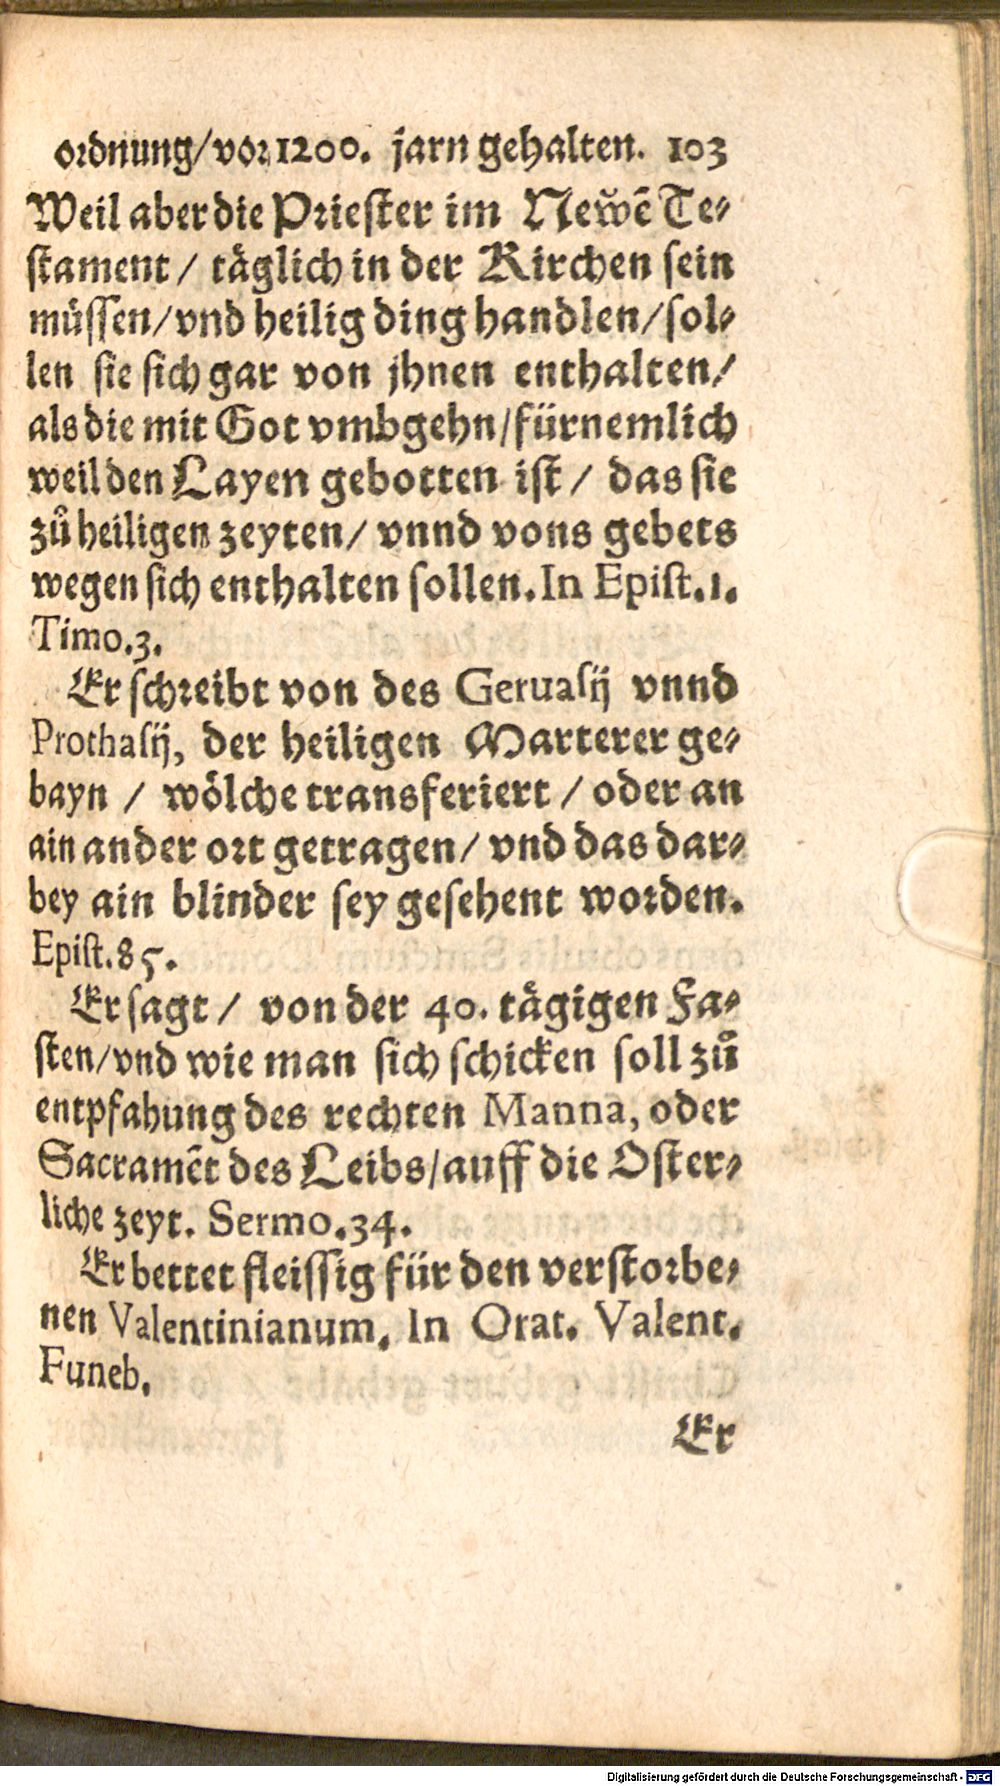 ordnung/vor 1200. jarn gehalten. 103
Weil aber die Priester im Newẽ Te-
stament / täglich in der Kirchen sein
müssen/vnd heilig ding handlen/sol-
len sie sich gar von jhnen enthalten/
als die mit Got vmbgehn/fürnemlich
weil den Layen gebotten ist / das sie
zů heiligen zeyten/ vnnd vons gebets
wegen sich enthalten sollen. In Epist.1.
Timo.3.
Er schreibt von des Geruasij vnnd
Prothasij, der heiligen Marterer ge-
bayn / wölche transferiert / oder an
ain ander ort getragen/ vnd das dar-
bey ain blinder sey gesehent worden.
Epist.85.
Er sagt / von der 40. tägigen Fa-
sten/vnd wie man sich schicken soll zů
entpfahung des rechten Manna, oder
Sacramẽt des Leibs/auff die Oster-
liche zeyt. Sermo.34.
Er bettet fleissig für den verstorbe-
nen Valentinianum. In Orat. Valent.
Funeb.
Er
Digitalisierung gefördert durch die Deutsche Forschungsgemeinschaft - DFG